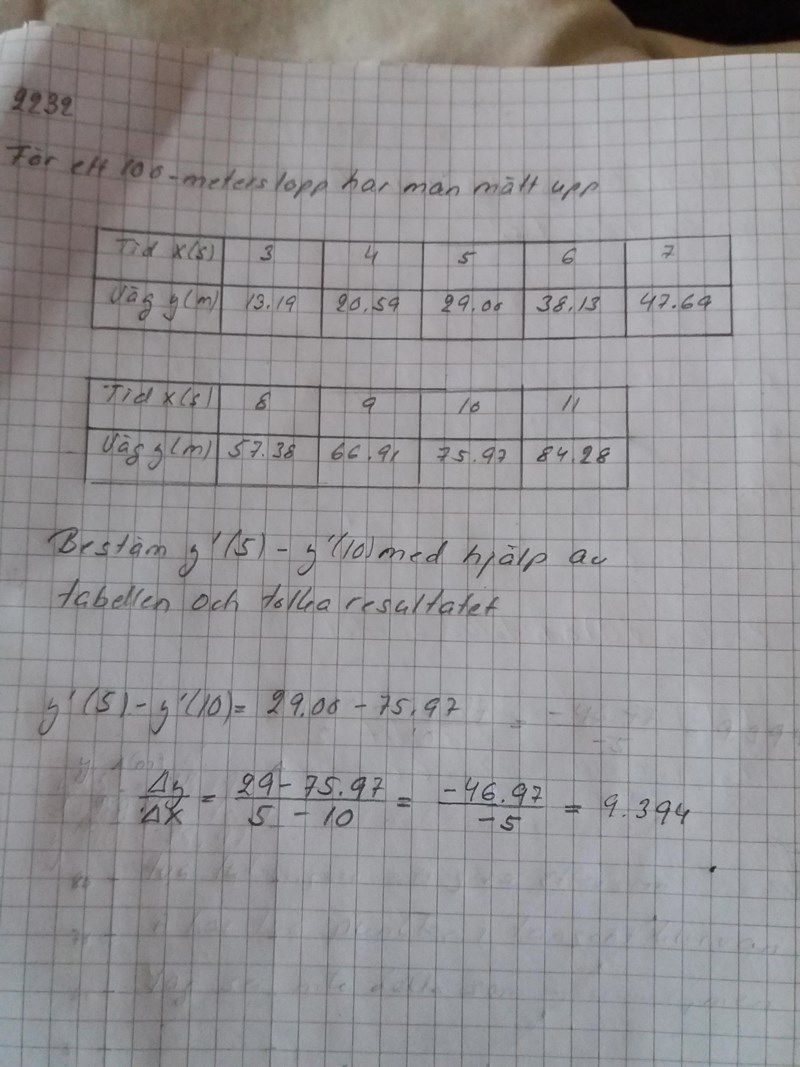 2232
För ett 100-meterslopp har man mätt upp
Tid x(s) 3 4 5 6 7
Väg y(m) 13.19 20.59 29.00 38.13 47.69
Tid x(s) 8 9 10 11
Väg y(m) 57.38 66.91 75.97 84.28
Bestäm y'(5) - y'(10) med hjälp av
tabellen och tolka resultatet
y'(5) - y'(10) = 29.00 - 75.97
Δy/Δx = 29 - 75.97 / 5 - 10 = -46.97 / -5 = 9.394